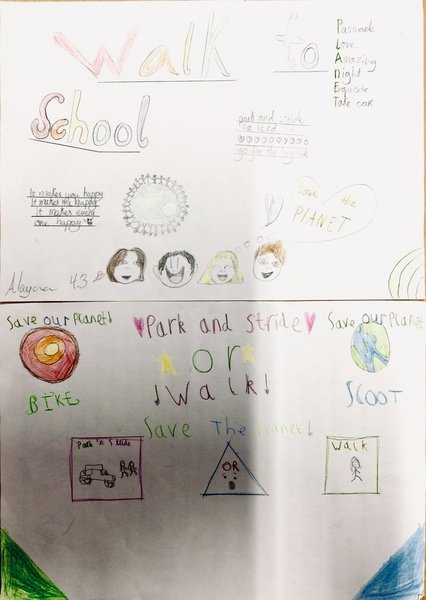 Walk to
School
Paswade
Love
Amazing
Night
Exquisite
Take care
park and stride
no need
go for the big ride
It makes you happy
It makes me happy
It makes every
one happy
Save the
PLANET
4.3
Save our Planet!
Park and Stride
Save our Planet
OR
Walk!
BIKE
SCOOT
Save The Planet!
Park 'n Stride
OR
Walk